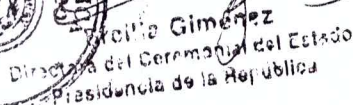 Gimenez
Directora del Ceremonial del Estado
Presidencia de la República